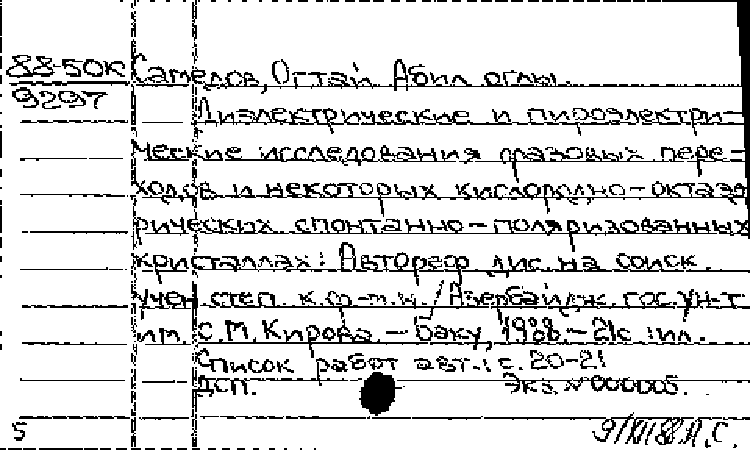 88-50К Самедов, Огтай Абил оглы.
9297
Диэлектрические и пироэлектри-
ческие исследования фазовых пере-
ходов в некоторых кислородно-октаэд
рических спонтанно-поляризованных
кристаллах: Автореф. дис. на соиск.
учен. степ. к.ф-м.н. / Азербайдж. гос. ун-т
им. С.М. Кирова. - Баку, 1988. - 21с. : ил.
Список работ авт.: с. 20-21
ДСП. Экз. N 000005.
5 9/XII 88 Л.С.